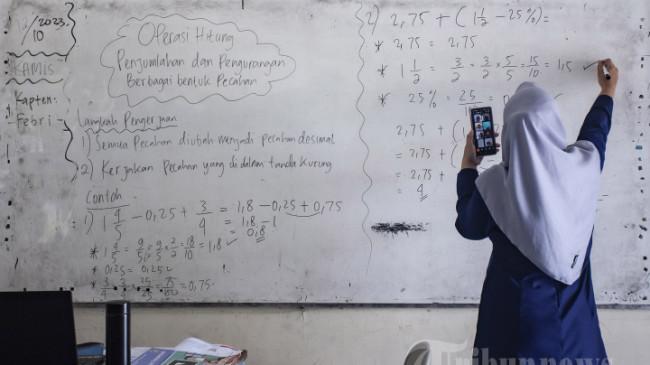 /2023.
/10
KAMIS
Kapten:
Febri -
Operasi Hitung
Penjumlahan dan Pengurangan
Berbagai bentuk Pecahan
Langkah Pengerjaan
1) Semua Pecahan diubah menjadi pecahan desimal
2) Kerjakan Pecahan yang di dalam tanda kurung
Contoh
1) 1 4/5 - 0,25 + 3/4 = 1,8 - 0,25 + 0,75
= 1,8 - 1
= 0,8
* 1 4/5 = 9/5 = 9/5 × 2/2 = 18/10 = 1,8 ✓
* 0,25 = 0,25 ✓
* 3/4 = 75/100 = 0,75
2) 2,75 + (1 1/2 - 25%) =
* 2,75 = 2,75
* 1 1/2 = 3/2 = 3/2 × 5/5 = 15/10 = 1,5 ✓
* 25% = 25/
2,75 + (1
= 2,75 +
= 2,75 +
= 4
Tribunnews